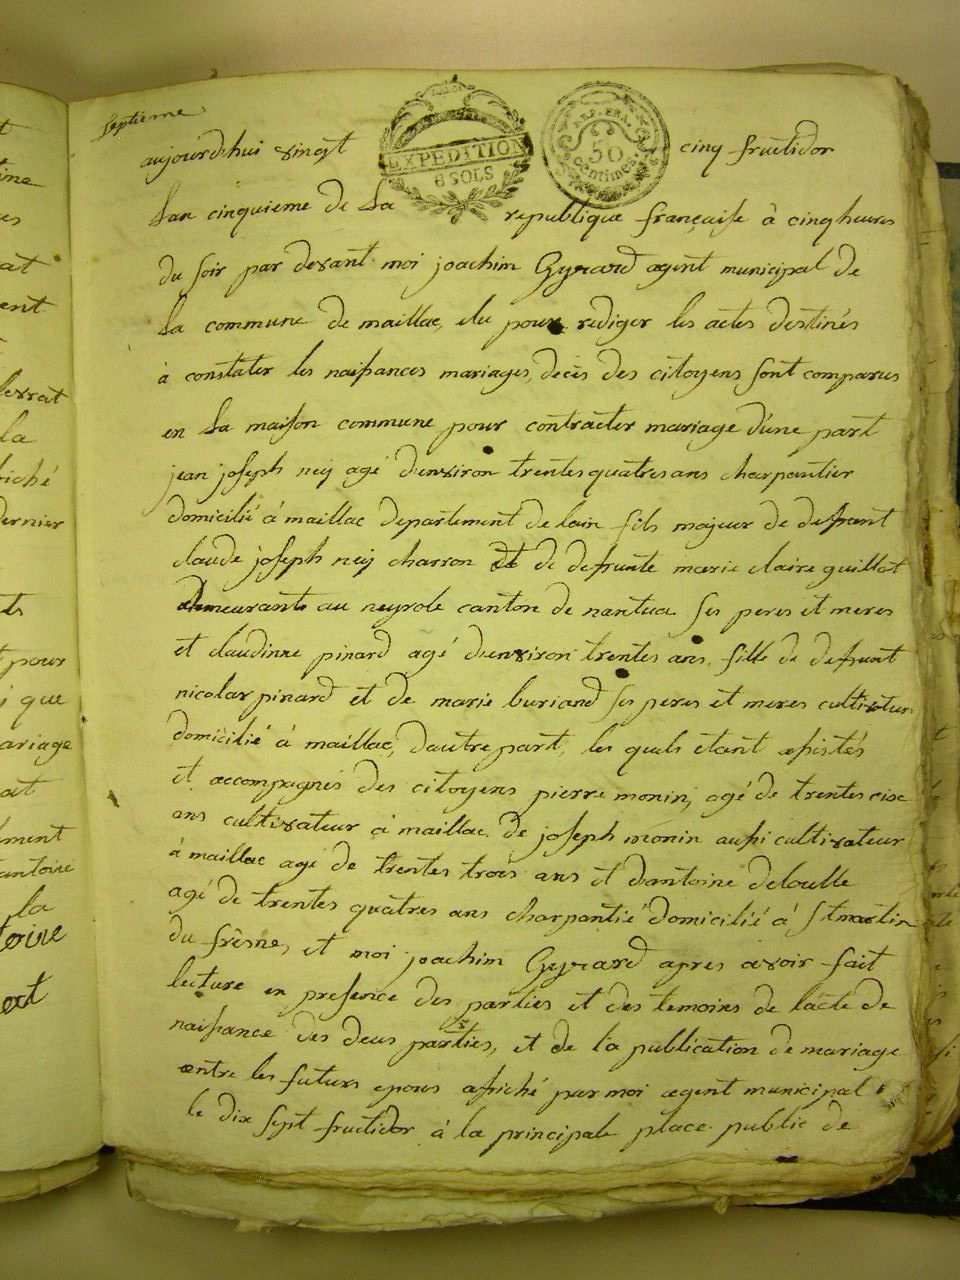 septieme
aujourdhui vingt cinq fructidor
EXPEDITION
6 SOLS
REP. FRA.
50
centimes.
Lan cinquieme de La republique française à cinq heures
du soir par devant moi joachim Gyrard agent municipal de
La commune de maillac, elu pour rediger les actes destinés
à constater les naissances mariages, decès des citoyens sont comparus
en La maison commune pour contracter mariage d'une part
jean joseph neij agé d'environ trentes quatres ans charpentier
domicilié à maillac departement de lain fils majeur de defunt
claude joseph neij charron et de defunte marie claire guillot
demeurants au neyrole canton de nantua ses peres et meres
et claudinne pinard agé d'environ trentes ans, fille de defunt
nicolas pinard et de marie buriand ses peres et meres cultivateurs
domicilié à maillac, dautre part, les quels etant assistés
et accompagnés des citoyens pierre monin, agé de trentes cisc
ans cultivateur à maillac, de joseph monin aussi cultivateur
à maillac agé de trentes trois ans et dantoine deloulle
agé de trentes quatres ans charpantié domicilié à st martin
du frêsne, et moi joachim Gyrard apres avoir fait
lecture en presence des parties et des temoins de lacte de
naissance des deus parties, et de la publication de mariage
entre les futurs epous affiché par moi agent municipal
le dix sept fructidor à la principale place public de